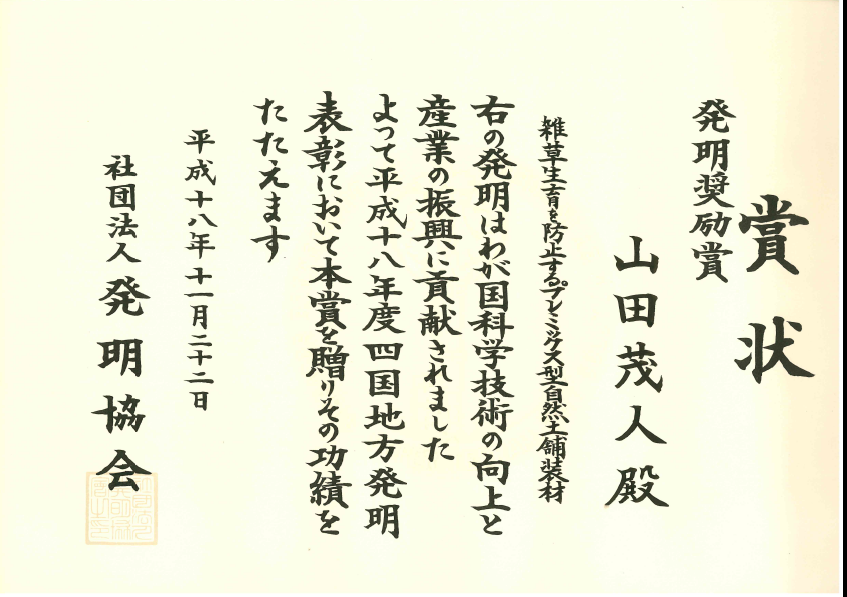 賞状
発明奨励賞
山田茂人殿
雑草生育を防止するプレミックス型自然土舗装材
右の発明はわが国科学技術の向上と
産業の振興に貢献されました
よって平成十八年度四国地方発明
表彰において本賞を贈りその功績を
たたえます
平成十八年十一月二十二日
社団法人発明協会